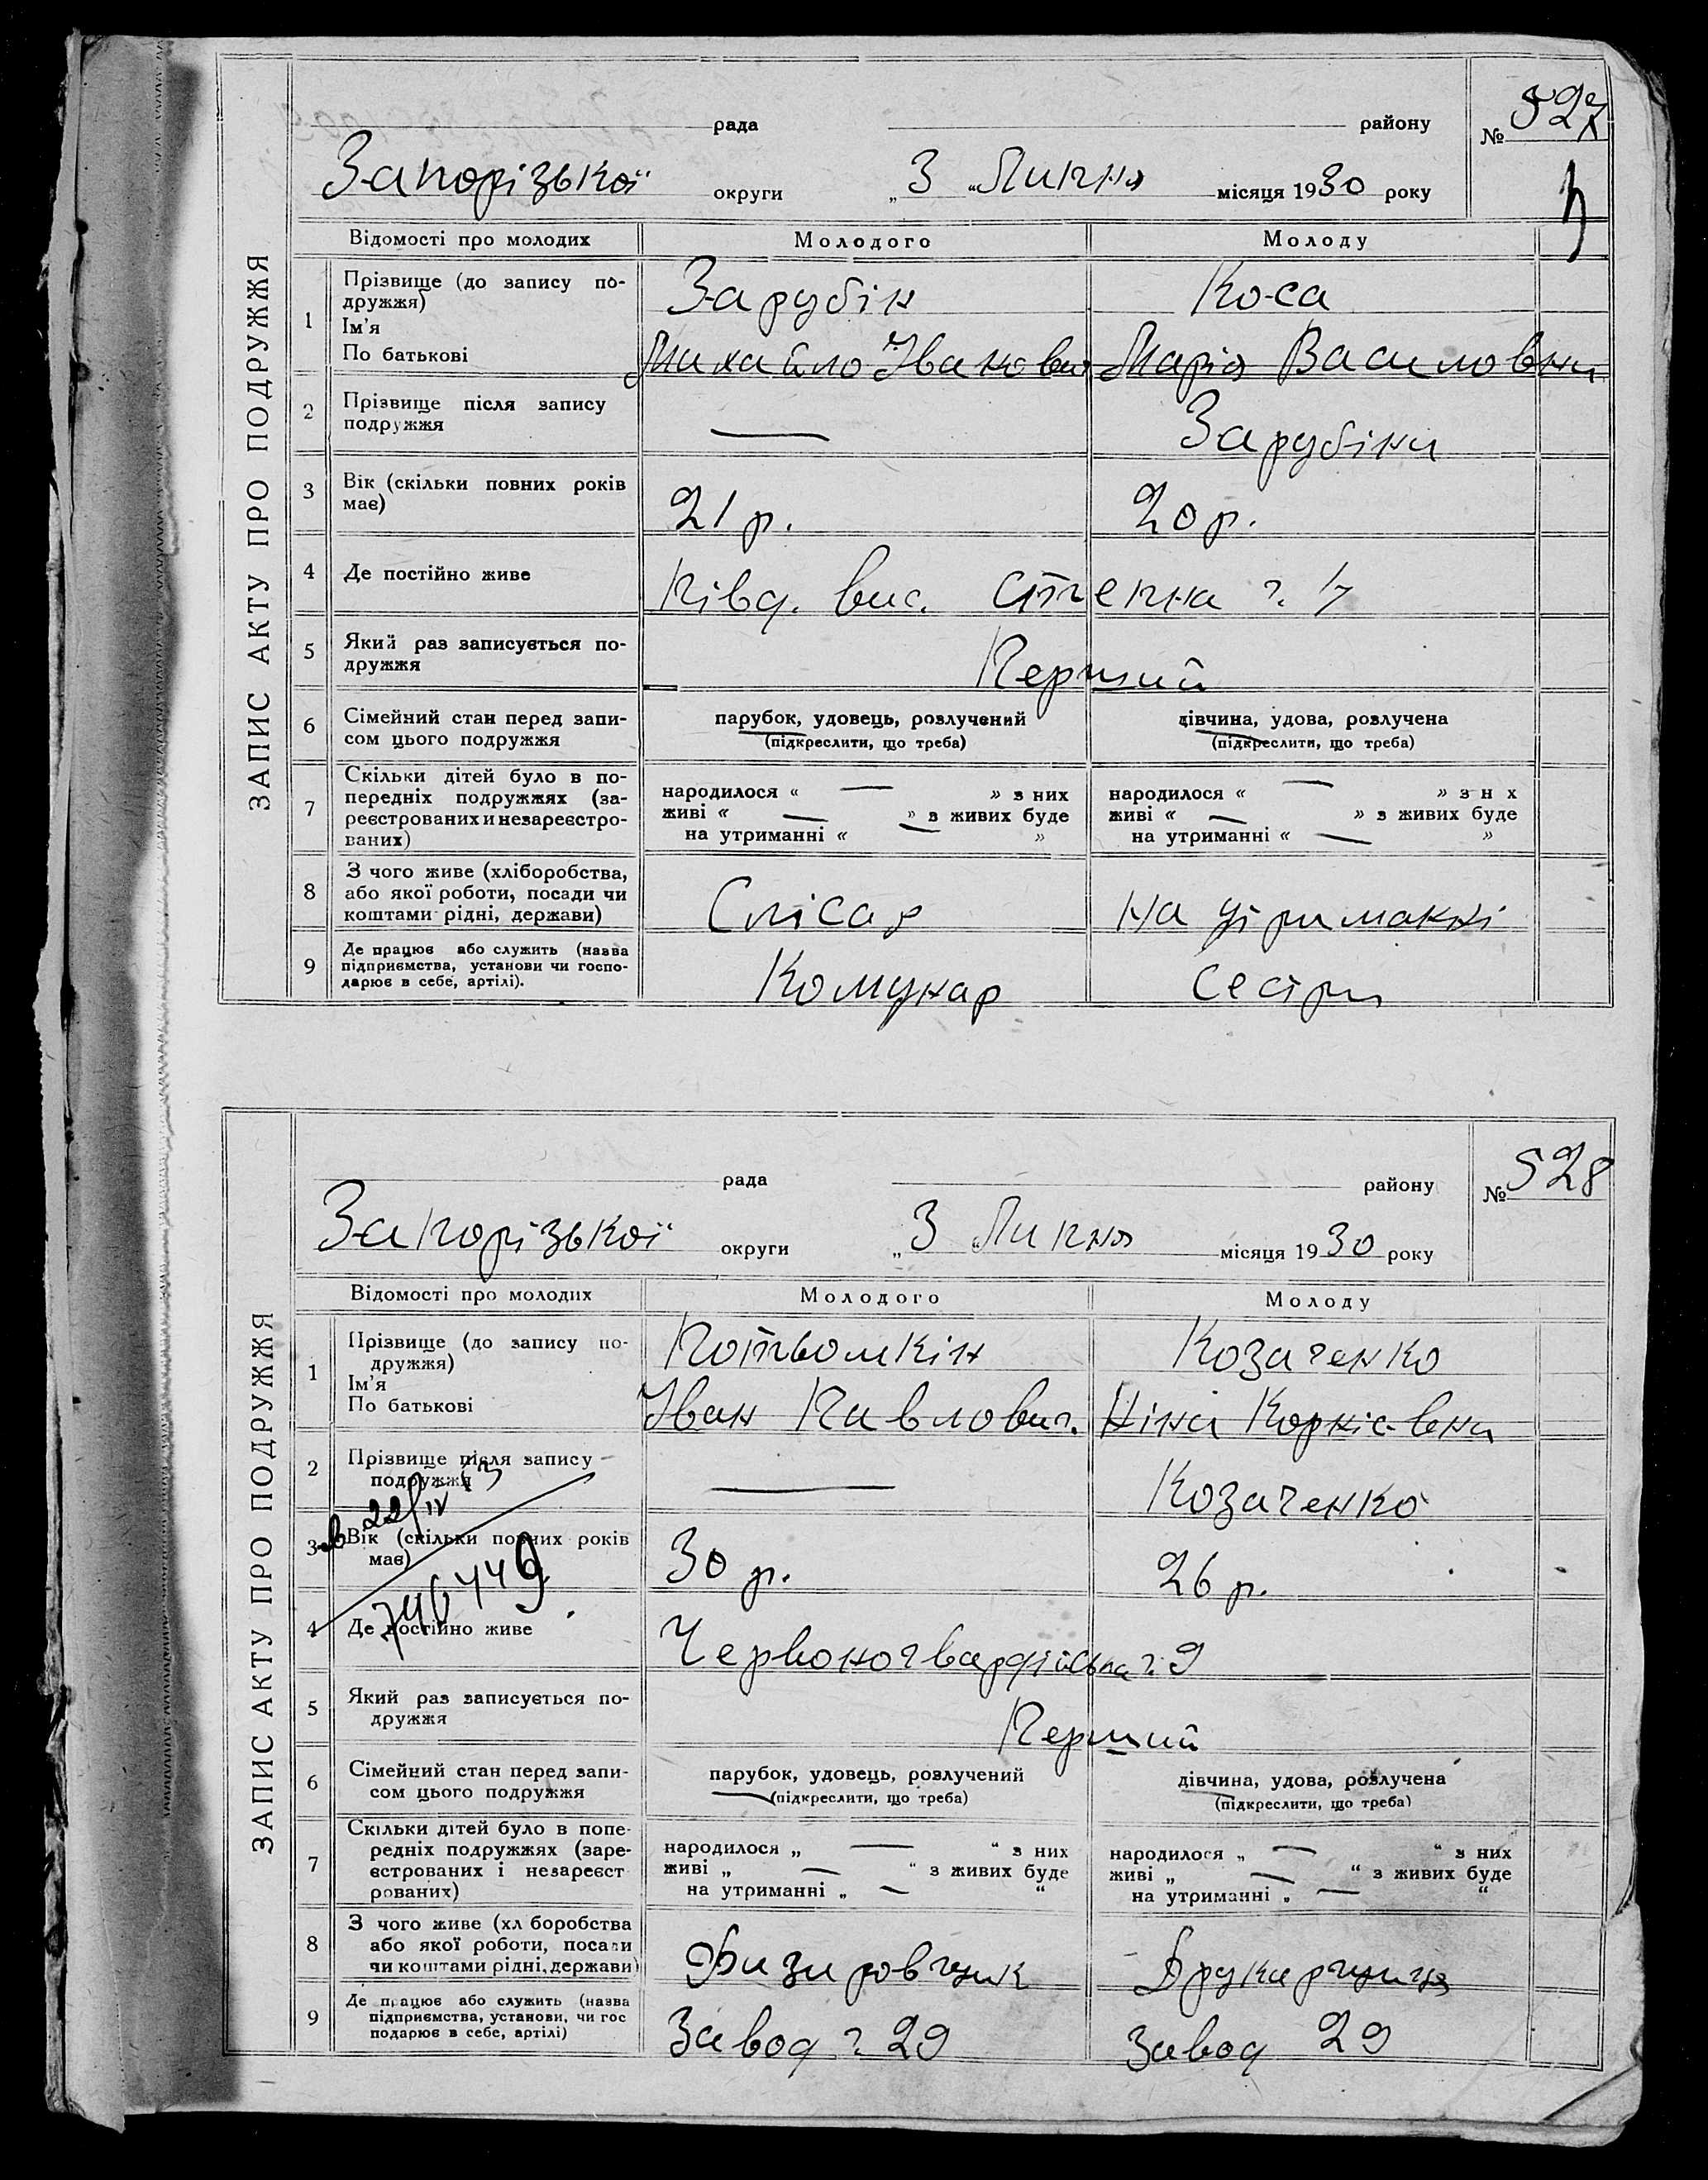 ЗАПИС АКТУ ПРО ПОДРУЖЖЯ
рада району № 527
Запорізької округи „ 3 „ Липня місяця 1930 року
Відомості про молодих Молодого Молоду
1 Прізвище (до запису по-
дружжя) Зарубін Коса
Ім'я
По батькові Михайло Іванович Марія Василовна
2 Прізвище після запису
подружжя — Зарубіна
3 Вік (скільки повних років
має) 21 р. 20 р.
4 Де постійно живе Півд. вис. Степна ч. 17
5 Який раз записується по-
дружжя Перший
6 Сімейний стан перед запи-
сом цього подружжя
парубок, удовець, розлучений
(підкреслити, що треба)
дівчина, удова, розлучена
(підкреслити, що треба)
7 Скільки дітей було в по-
передніх подружжях (за-
реєстрованих и незареєстро-
ваних)
народилося « — » з них
живі « — » з живих буде
на утриманні « — »
народилося « — » з н х
живі « — » з живих буде
на утриманні « — »
8 З чого живе (хліборобства,
або якої роботи, посади чи
коштами рідні, держави) Слісар На утриманні
9 Де працює або служить (назва
підприємства, установи чи госпо-
дарює в себе, артілі). Комунар Сестри
ЗАПИС АКТУ ПРО ПОДРУЖЖЯ
рада району № 528
Запорізької округи „ 3 „ Липня місяця 1930 року
Відомості про молодих Молодого Молоду
1 Прізвище (до запису по-
дружжя) Потьомкін Козаченко
Ім'я
По батькові Іван Павлович. Ніна Корніевна
2 Прізвище після запису
подружжя — Козаченко
22/IV
3 Вік (скільки повних років
має) 30 р. 26 р.
746449
4 Де постійно живе Червоногвардійська ч. 9
5 Який раз записується по-
дружжя Перший
6 Сімейний стан перед запи-
сом цього подружжя
парубок, удовець, розлучений
(підкреслити, що треба)
дівчина, удова, розлучена
(підкреслити, що треба)
7 Скільки дітей було в попе-
редніх подружжях (заре-
єстрованих і незареєст
рованих)
народилося „ — “ з них
живі „ — “ з живих буде
на утриманні „ — “
народилося „ — “ з них
живі „ — “ з живих буде
на утриманні „ — “
8 З чого живе (хл боробства
або якої роботи, посади
чи коштами рідні, держави) Физировчик Друкарщиця
9 Де працює або служить (назва
підприємства, установи, чи гос
подарює в себе, артілі) Завод ч. 29 Завод 29